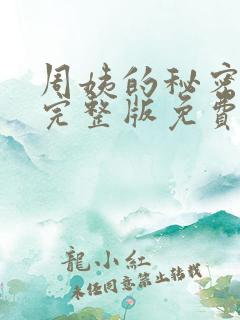 周姨的秘密
完整版免费
龍小紅
未经同意禁止转载